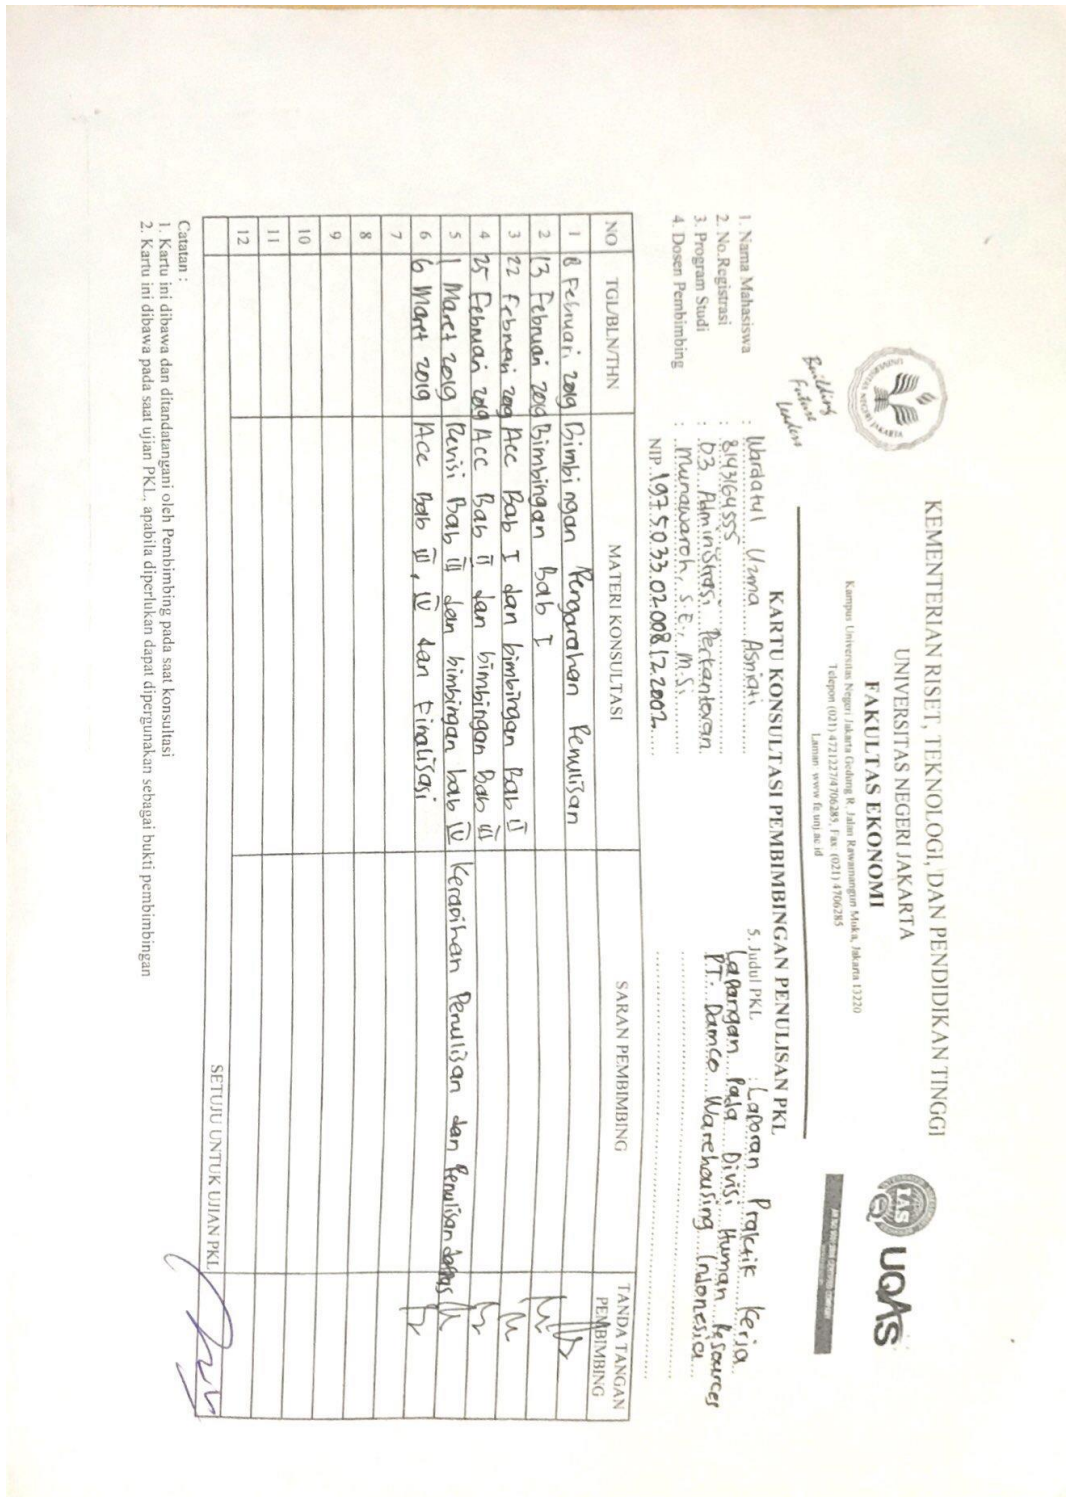 KEMENTERIAN RISET, TEKNOLOGI, DAN PENDIDIKAN TINGGI
UNIVERSITAS NEGERI JAKARTA
FAKULTAS EKONOMI
Kampus Universitas Negeri Jakarta Gedung R, Jalan Rawamangun Muka, Jakarta 13220
Telepon (021) 4721227/4706285, Fax: (021) 4706285
Laman: www.fe.unj.ac.id
UNIVERSITAS NEGERI JAKARTA
Building
Future
Leaders
IAS
UQAS
KARTU KONSULTASI PEMBIMBINGAN PENULISAN PKL
1. Nama Mahasiswa : Wardatul Uzma Asniati
2. No.Registrasi : 8143164555
3. Program Studi : D3 Administrasi Perkantoran
4. Dosen Pembimbing : Munawaroh, S.E., M.Si
NIP. 197503302008122002
5. Judul PKL : Laporan Praktik Kerja
Lapangan Pada Divisi Human Resources
PT. Damco Warehousing Indonesia
NO TGL/BLN/THN MATERI KONSULTASI SARAN PEMBIMBING TANDA TANGAN PEMBIMBING
1 8 Februari 2019 Bimbingan Pengarahan Penulisan
2 13 Februari 2019 Bimbingan Bab I
3 22 Februari 2019 Acc Bab I dan bimbingan Bab II
4 25 Februari 2019 Acc Bab II dan bimbingan Bab III
5 1 Maret 2019 Revisi Bab III dan bimbingan bab IV Kerapihan Penulisan dan Penulisan
6 6 Maret 2019 Acc Bab III, IV dan Finalisasi
7
8
9
10
11
12
SETUJU UNTUK UJIAN PKL
Catatan :
1. Kartu ini dibawa dan ditandatangani oleh Pembimbing pada saat konsultasi
2. Kartu ini dibawa pada saat ujian PKL, apabila diperlukan dapat dipergunakan sebagai bukti pembimbingan